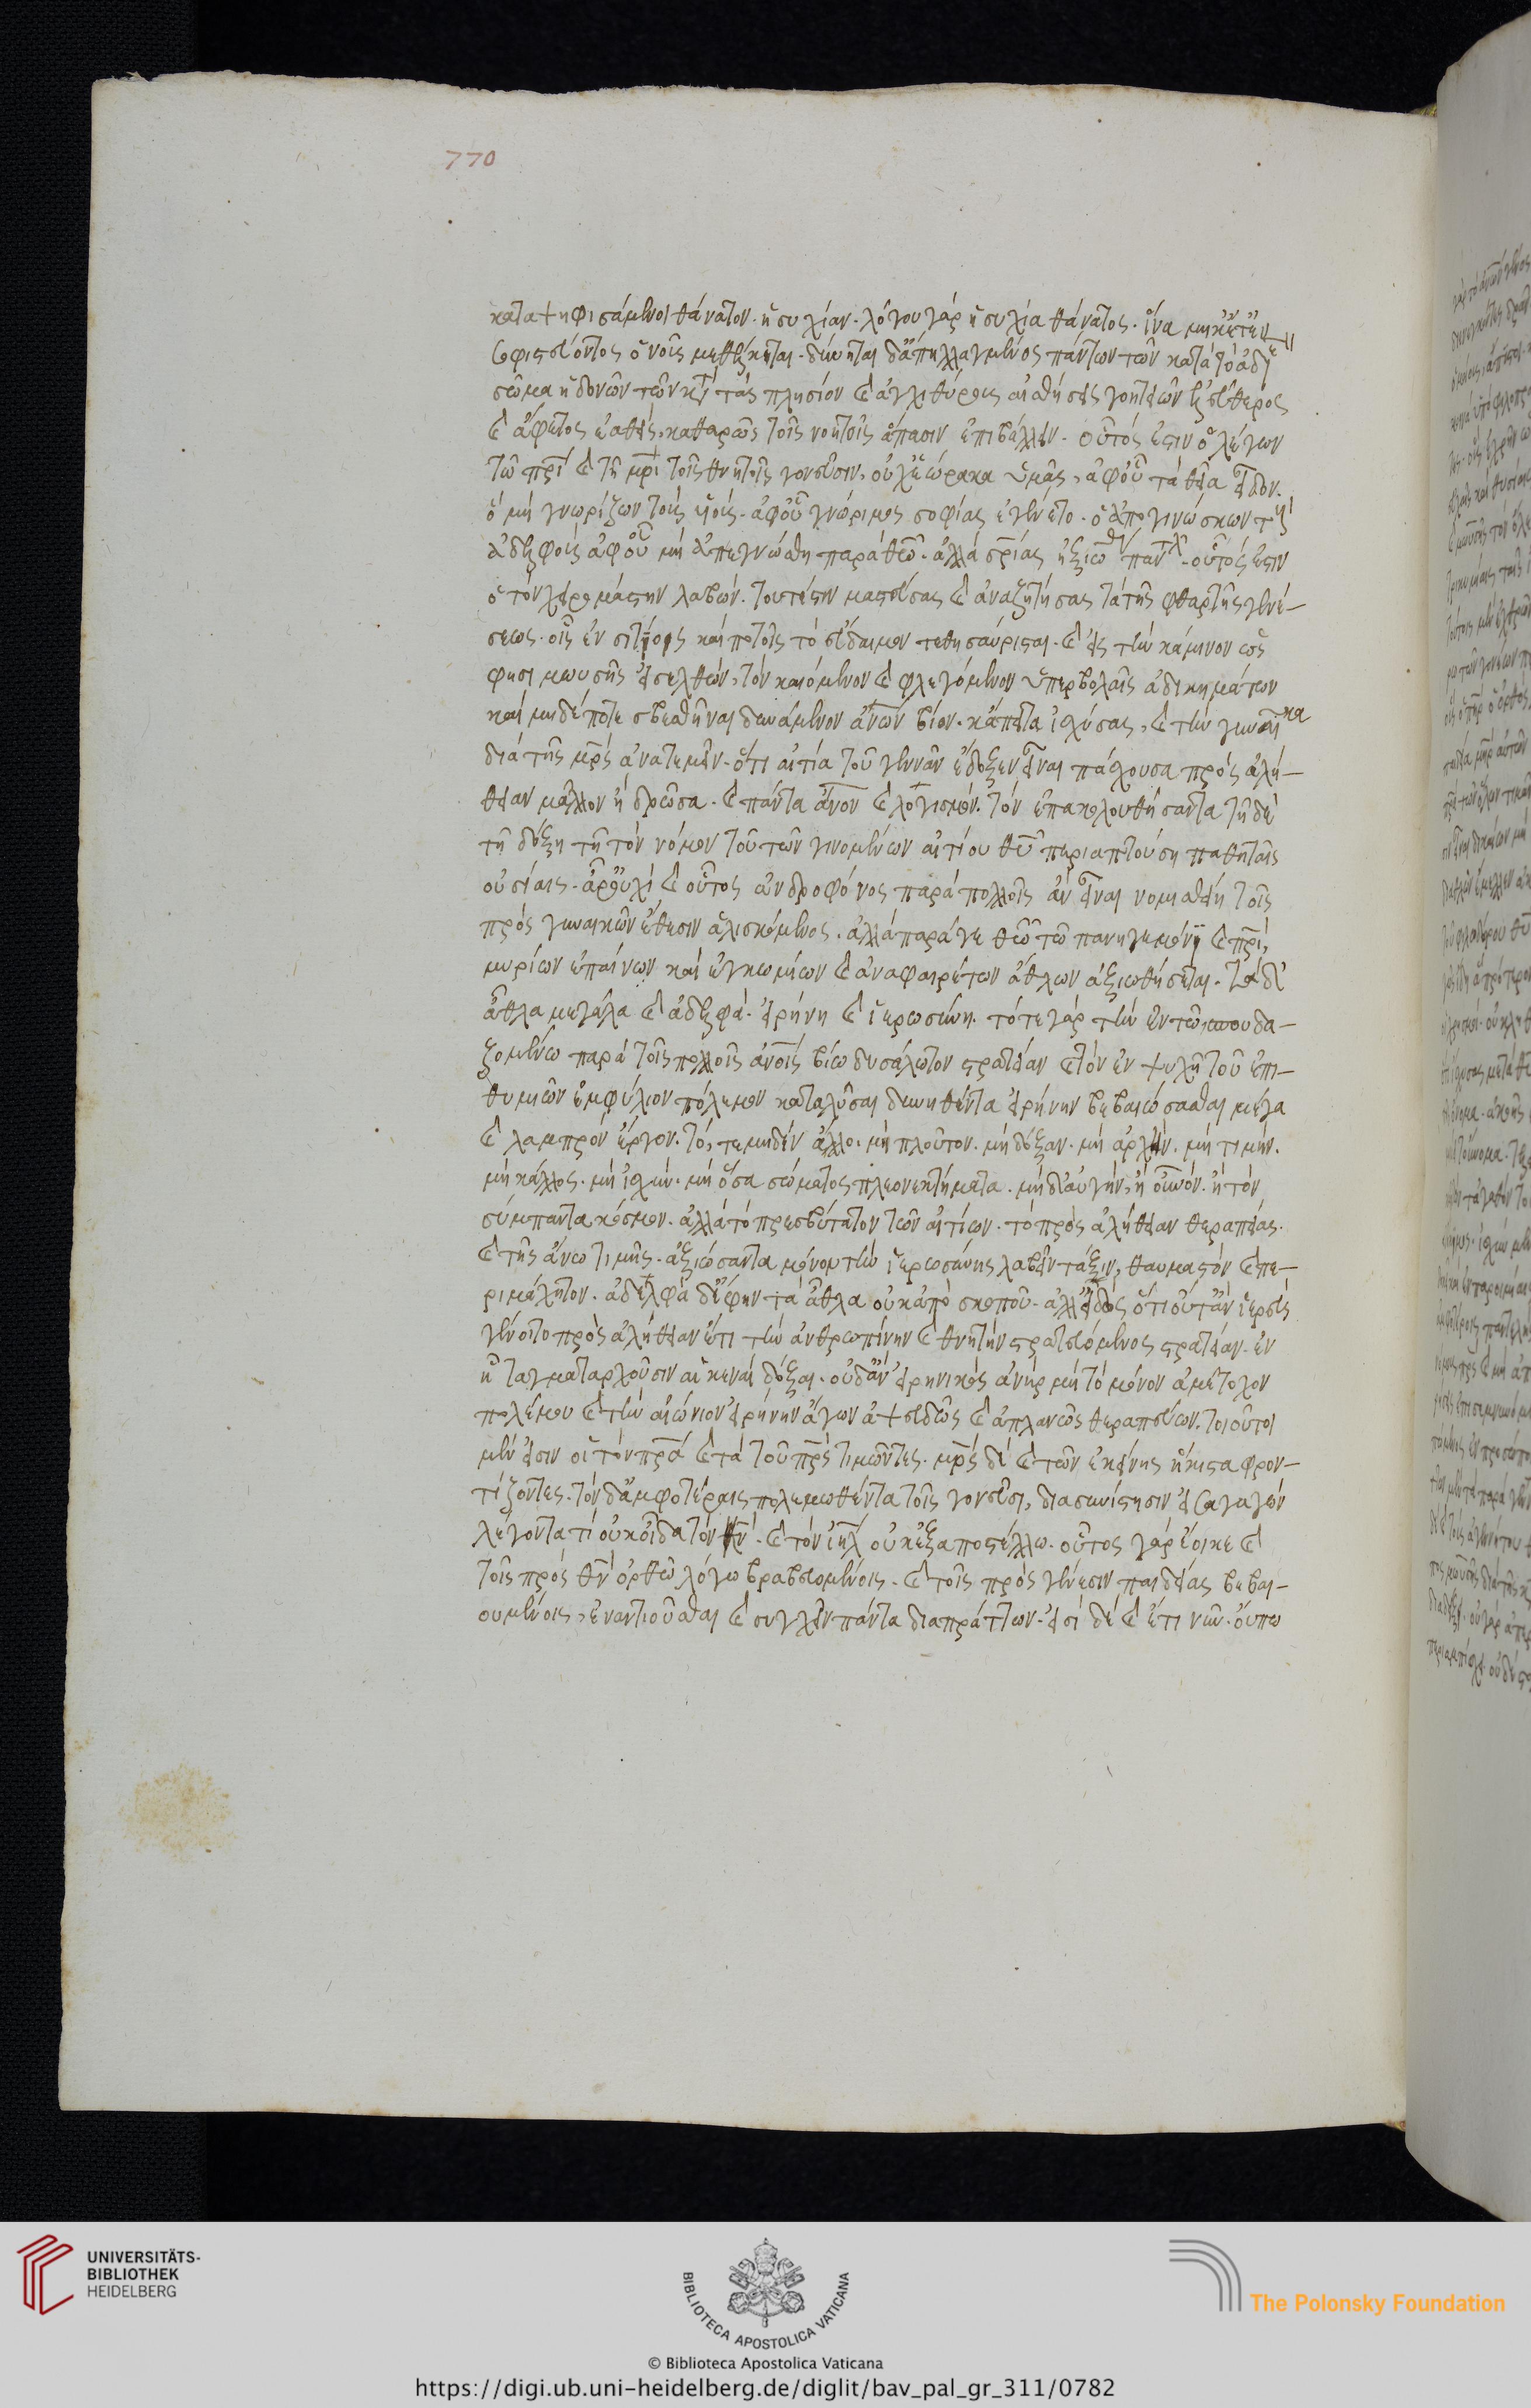 770
καταψηφισάμενοι θάνατον. ἡσυχίαν. λόγου γὰρ ἡσυχία θάνατος. ἵνα μηκέτ' ἐν
σοφιστεύοντος ὁ νοῦς μεθέλκηται. δύνηται δ' ἀπηλλαγμένος πάντων τῶν κατὰ τὸ ἀδελ
σῶμα ἡδονῶν τῶν κατὰ τὰς πλησίον καὶ ἀγχιθύρους αἰσθήσεις γοητειῶν ἐλεύθερος
καὶ ἄφετος ἐαθεὶς, καθαρῶς τοῖς νοητοῖς ἅπασιν ἐπιβάλλειν. οὗτός ἐστιν ὁ λέγων
τῶ πρὶ καὶ τῆ μρὶ τοῖς θνητοῖς γονεῦσιν, οὐχ ἑώρακα ὑμᾶς, ἀφ' οὗ τὰ θεῖα εἶδον.
ὁ μὴ γνωρίζων τοὺς υἱούς. ἀφ' οὗ γνώριμος σοφίας ἐγένετο. ὁ ἀπογινώσκων τοὺς
ἀδελφοὺς ἀφ' οὗ μὴ ἀπεγνώσθη παρὰ θεῶ. ἀλλὰ σρίας ἠξιώθη παντελ. οὗτός ἐστιν
ὁ τὸν χειρομάστην λαβών. τουτέστιν μαστεύσας καὶ ἀναζητήσας τὰ τῆς φθαρτῆς γενέ-
σεως. οἷς ἐν σιτίοις καὶ ποτοῖς τὸ εὔδαιμον τεθησαύρισται. καὶ εἰς τὴν κάμινον ὥς
φησι μωυσῆς εἰσελθών, τὸν καιόμενον καὶ φλεγόμενον ὑπερβολαῖς ἀδικημάτων
καὶ μηδέποτε σβεσθῆναι δυνάμενον ἀνων βίον. κἄπειτα ἰσχύσας, καὶ τὴν γυναῖκα
διὰ τῆς μρς ἀνατεμεῖν. ὅτι αἰτία τοῦ γεννᾶν ἔδοξεν εἶναι πάσχουσα πρὸς ἀλή-
θειαν μᾶλλον ἢ δρῶσα. καὶ πάντα ἄνον καὶ λογισμὸν. τὸν ἐπακολουθήσαντα τῆδε
τῆ δόξη τῆ τὸν νόμον τοῦ τῶν γινομένων αἰτίου θυ περιαπτούση παθηταῖς
οὐσίαις. ἆρ' οὐχὶ καὶ οὗτος ἀνδροφόνος παρὰ πολλοῖς ἂν εἶναι νομισθείη τοῖς
πρὸς γυναικῶν ἔθεσιν ἁλισκόμενος. ἀλλὰ παρά γε θεῶ τῶ πανηγεμόνι καὶ πρὶ,
μυρίων ἐπαίνων καὶ ἐγκωμίων καὶ ἀναφαιρέτων ἄθλων ἀξιωθήσεται. τὰ δὲ
ἆθλα μεγάλα καὶ ἀδελφά. εἰρήνη καὶ ἱερωσύνη. τό τε γὰρ τὴν ἐν τῶ σπουδα-
ζομένω παρὰ τοῖς πολλοῖς ἀνοις βίω δυσάλωτον στρατείαν καὶ τὸν ἐν ψυχῆ τοῦ ἐπι-
θυμιῶν ἐμφύλιον πόλεμον καταλῦσαι δυνηθέντα εἰρήνην βεβαιώσασθαι μέγα
καὶ λαμπρὸν ἔργον. τό, τε μηδὲν ἄλλο. μὴ πλοῦτον. μὴ δόξαν. μὴ ἀρχὴν. μὴ τιμήν.
μὴ κάλλος. μὴ ἰσχύν. μὴ ὅσα σώματος πλεονεκτήματα. μὴ δ' αὖ γῆν, ἢ οὐνόν. ἢ τὸν
σύμπαντα κόσμον. ἀλλὰ τὸ πρεσβύτατον τῶν αἰτίων. τὸ πρὸς ἀλήθειαν θεραπείας.
καὶ τῆς ἄνω τιμῆς. ἀξιώσαντα μόνον τὴν ἱερωσύνης λαβεῖν τάξιν, θαυμαστὸν καὶ πε-
ριμάχητον. ἀδελφὰ δ' ἔφην τὰ ἆθλα οὐκ ἀπὸ σκοποῦ. ἀλλ' εἰδὼς ὅτι οὔτ' ἂν ἱερεὺς
γένοιτο πρὸς ἀλήθειαν ἔτι τὴν ἀνθρωπίνην καὶ θνητὴν στρατευόμενος στρατείαν. ἐν
ἧ ταγματαρχοῦσιν αἱ κεναὶ δόξαι. οὐδ' ἂν εἰρηνικὸς ἀνὴρ μὴ τὸ μόνον ἀμέτοχον
πολέμου καὶ τὴν αἰώνιον εἰρήνην ἄγων ἀψευδῶς καὶ ἀπλανῶς θεραπεύων. τοιοῦτοι
μέν εἰσιν οἱ τὸν πρα καὶ τὰ τοῦ πρς τιμῶντες. μρς δὲ καὶ τῶν ἐκείνης ἥκιστα φρον-
τίζοντες. τὸν δ' ἀμφοτέραις πολεμωθέντα τοῖς γονεῦσι, διασυνίστησιν εἰσαγαγὼν
λέγοντα τί οὐκ οἶδα τὸν κν. καὶ τὸν ιηλ οὐκ ἐξαποστέλλω. οὗτος γὰρ ἔοικε καὶ
τοῖς πρὸς θν ὀρθῶ λόγω βραβευομένοις. καὶ τοῖς πρὸς γένεσιν παιδείας βεβαι-
ουμένοις, ἐναντιοῦσθαι καὶ συγχεῖν πάντα διαπράττων. εἰσὶ δὲ καὶ ἔτι νῦν. οὔπω
UNIVERSITÄTS-
BIBLIOTHEK
HEIDELBERG
BIBLIOTECA APOSTOLICA VATICANA
The Polonsky Foundation
© Biblioteca Apostolica Vaticana
https://digi.ub.uni-heidelberg.de/diglit/bav_pal_gr_311/0782